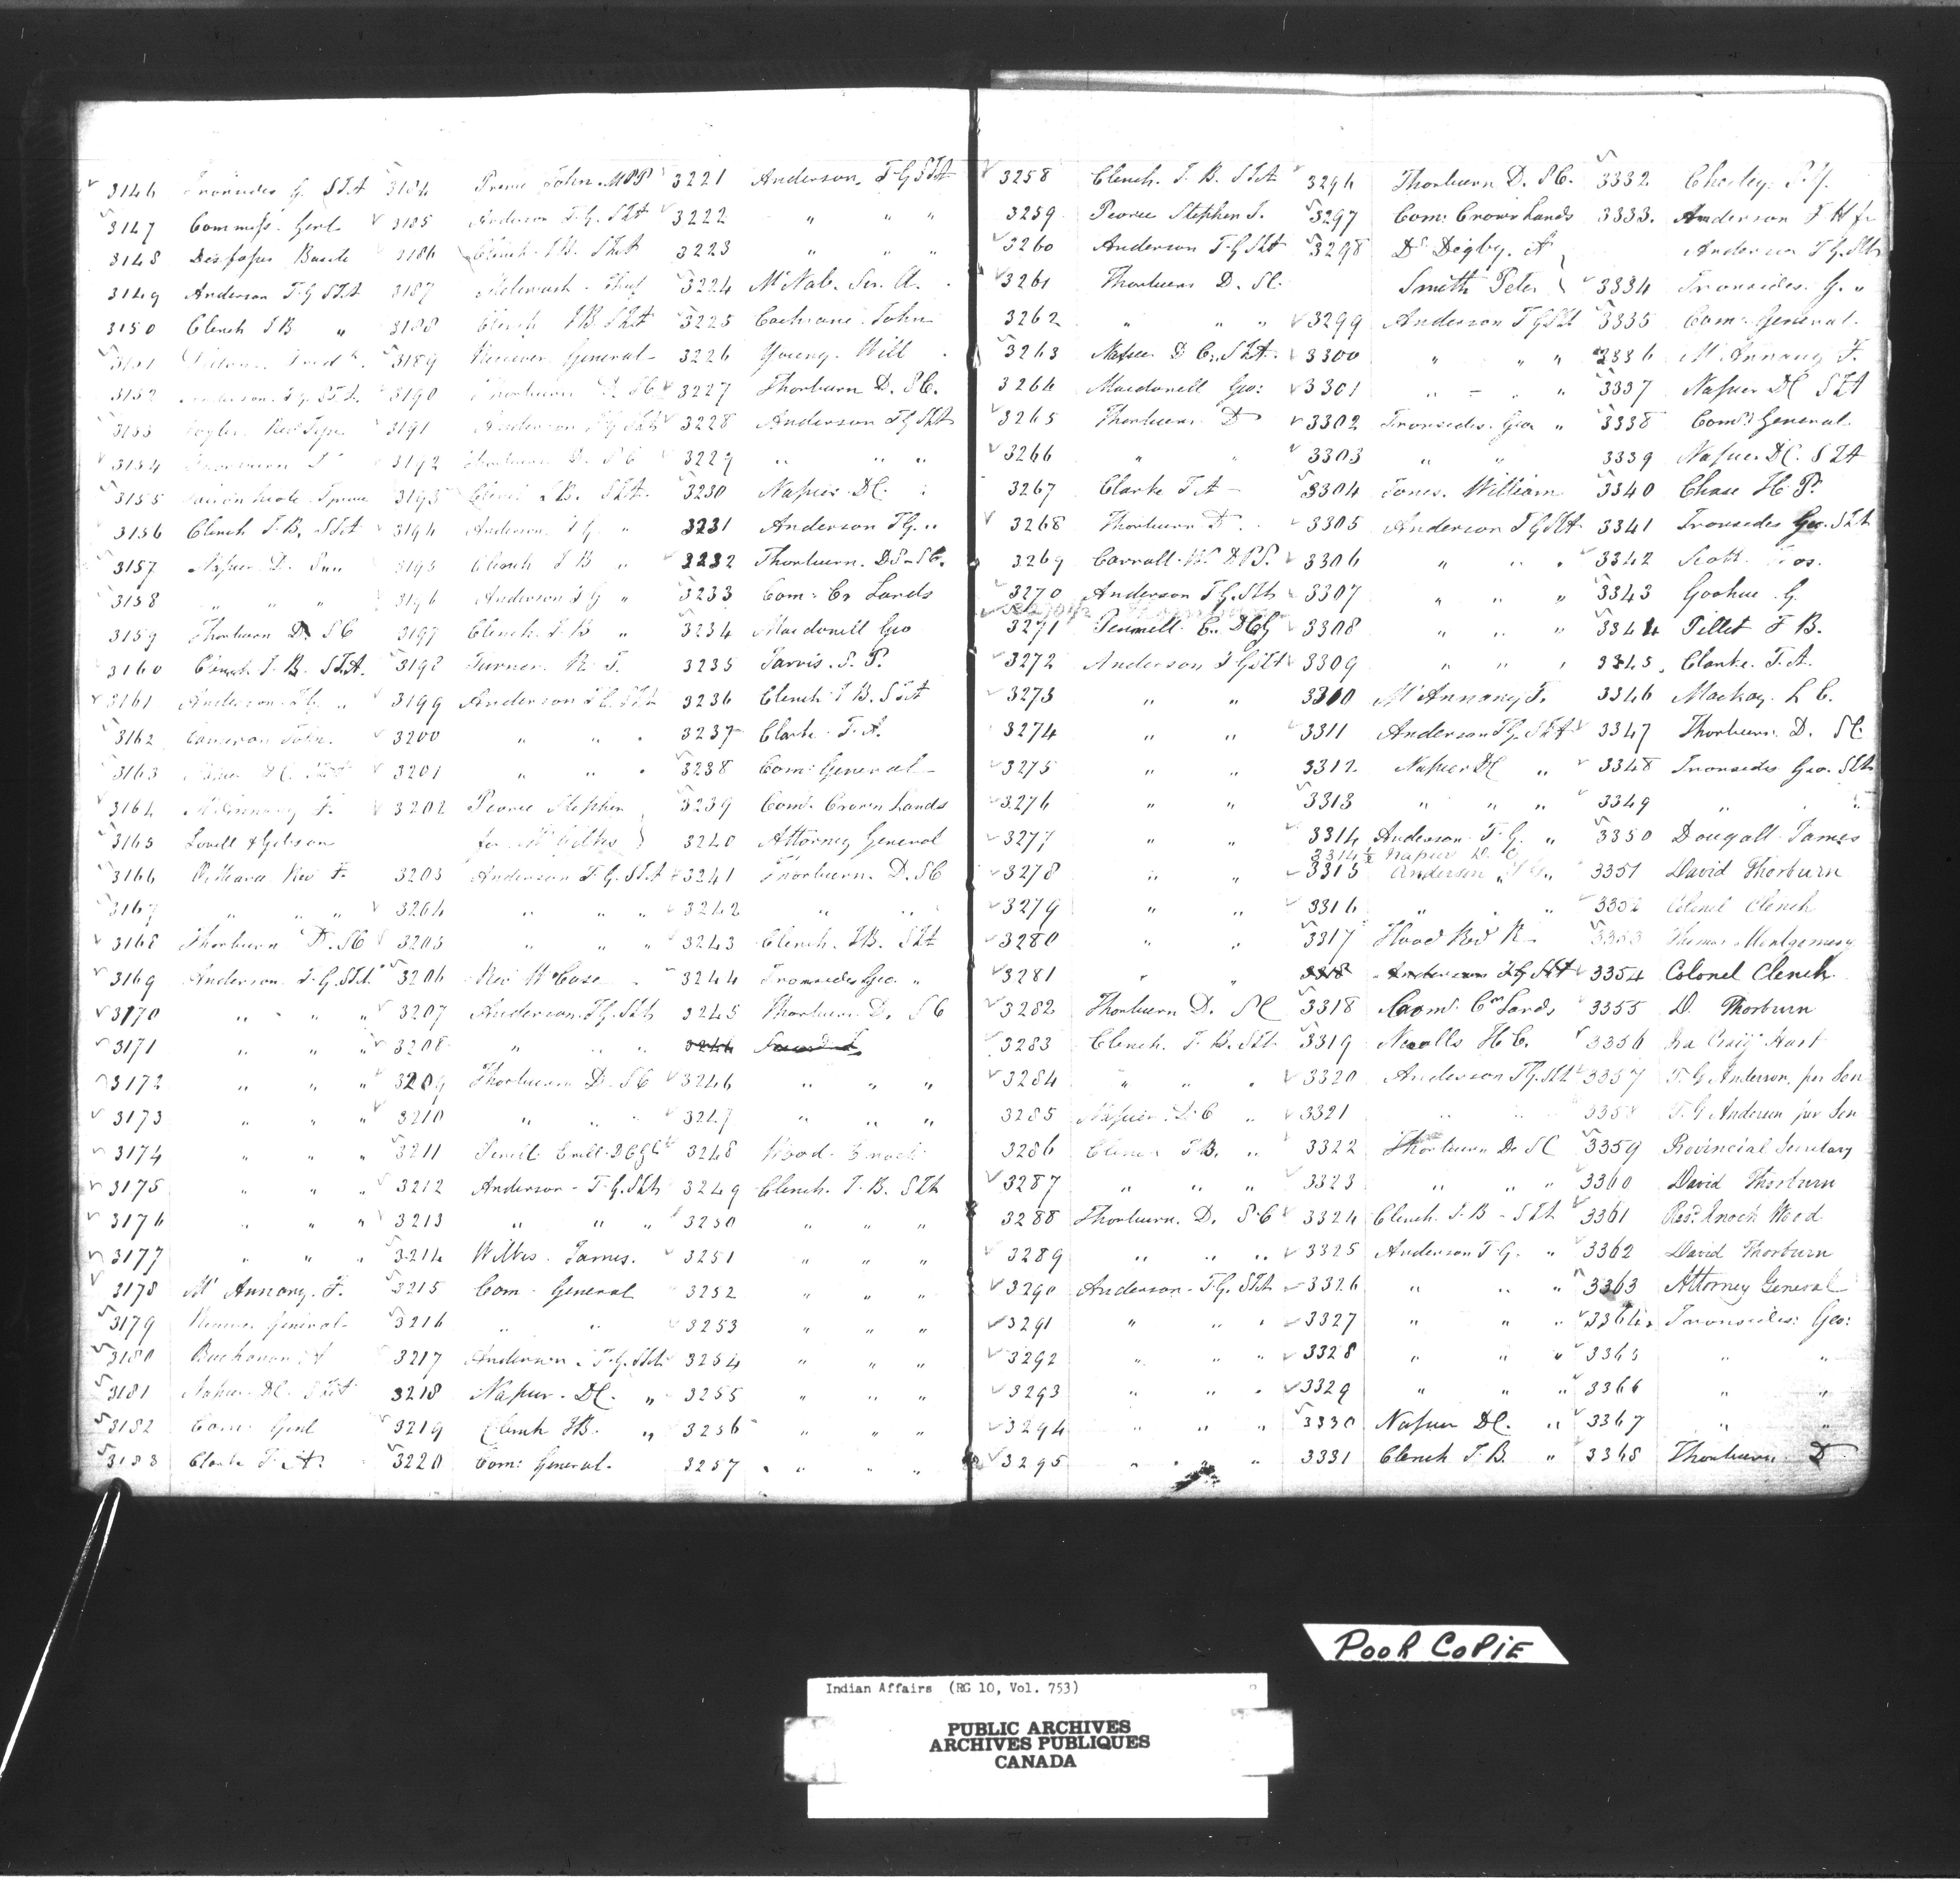 3146 Ironsides G. S.I.A
3147 Commiss. Genl
3148 Basile
3149 Anderson T G S.I.A
3150 Clench J B "
3151
3152 Anderson T.G. S.I.A.
3153
3154 Thorburn D
3155
3156 Clench J. B. S.I.A
3157 Napier D.
3158 " " "
3159 Thorburn D. S C
3160 Clench J. B. S.I.A.
3161 Anderson T.G. "
3162 Cameron John
3163 Napier D C. S.I.A
3164 McAnnany F.
3165 Lovell & Gibson
3166 O'Meara Rev F.
3167 " " "
3168 Thorburn D. S C
3169 Anderson T. G. S.I.A
3170 " " "
3171 " " "
3172 " " "
3173 " " "
3174 " " "
3175 " " "
3176 " " "
3177 " " "
3178 Mc Annany. F.
3179 Receiver General
3180 Buchanan A
3181 Napier D C. S.I.A
3182 Com: Genl
3183 Clarke T. A.
3184 Prince John. M P P
3185 Anderson T. G. S.I.A
3186 Clench J B. S.I.A
3187
3188 Clench J B. S.I.A
3189 Receiver General
3190 Thorburn D. S C
3191 Anderson T G S.I.A
3192 Thorburn D. S C
3193 Clench J. B. S.I.A.
3194 Anderson T G "
3195 Clench J B "
3196 Anderson T G "
3197 Clench J. B "
3198 Turner. R. J.
3199 Anderson T. G. S.I.A
3200 " " "
3201 " " "
3202 Pearce Stephen
for
3203 Anderson T. G. S.I.A
3204 " " "
3205 " " "
3206 Rev W Case
3207 Anderson. T.G. S.I.A
3208 " " "
3209 Thorburn D. S C
3210 " " "
3211
3212 Anderson - T. G. S.I.A
3213 " " "
3214 James.
3215 Com - General
3216 " "
3217 Anderson. T. G. S.I.A
3218 Napier - D C. "
3219 Clench J B. "
3220 Com: General.
3221 Anderson. T G S.I.A
3222 " " "
3223 " " "
3224 McNab. Sir. A.
3225 Cochrane. John
3226 Young. Will
3227 Thorburn D. S C.
3228 Anderson T G S.I.A
3229 " " "
3230 Napier D C. "
3231 Anderson T G. "
3232 Thorburn. D S C.
3233 Com: Cr Lands
3234 Macdonell Geo
3235 Jarvis. S. P.
3236 Clench J B. S.I.A
3237 Clarke. T. A.
3238 Com: General
3239 Com: Crown Lands
3240 Attorney General
3241 Thorburn. D. S C
3242 " "
3243 Clench. J B. S.I.A
3244 Ironsides Geo "
3245 Thorburn D. S C
3246 " " "
3247 " " "
3248 Wood. Enoch
3249 Clench. J. B. S.I.A
3250 " " "
3251 " " "
3252 " " "
3253 " " "
3254 " " "
3255 " " "
3256 " " "
3257 " " "
3258 Clench. J. B. S.I.A
3259 Pearce Stephen J.
3260 Anderson T G S.I.A
3261 Thorburn D. S C.
3262 " " "
3263 Napier D C. S.I.A.
3264 Macdonell Geo:
3265 Thorburn D
3266 " "
3267 Clarke T A -
3268 Thorburn D.
3269 Carroll. W.
3270 Anderson T G. S.I.A
3271
3272 Anderson T G S.I.A
3273 " "
3274 " "
3275 " "
3276 " "
3277 " "
3278 " "
3279 " "
3280 " "
3281 " "
3282 Thorburn D. S C
3283 Clench. J. B. S.I.A
3284 " " "
3285 Napier. D C "
3286 Clench J B. "
3287 " " "
3288 Thorburn. D. S C
3289 " " "
3290 Anderson - T. G. S.I.A
3291 " " "
3292 " " "
3293 " " "
3294 " " "
3295 " " "
3296 Thorburn D. S C.
3297 Com: Crown Lands
3298 Dr Digby. A
Smith Peter
3299 Anderson T G S.I.A
3300 " " "
3301 " " "
3302 Ironsides. Geo "
3303 " "
3304 Jones. William
3305 Anderson T G S.I.A
3306 " " "
3307 " " "
3308 " " "
3309 " " "
3310 McAnnany F.
3311 Anderson T G. S.I.A
3312 Napier D C "
3313 " " "
3314 Anderson T. G. "
3314½ Napier D. C
3315 Anderson " T G "
3316 " " "
3317 Flood Rev R
3318 Anderson T G S.I.A
3318 Com: Cn Lands
3319 Nealls H C.
3320 Anderson T G. S.I.A
3321 " "
3322 Thorburn D. S C
3323 " " "
3324 Clench. J. B - S.I.A
3325 Anderson T G. "
3326 " " "
3327 " " "
3328 " " "
3329 " " "
3330 Napier D C. "
3331 Clench J. B. "
3332 Chesley. S. Y.
3333. Anderson
Anderson T G. S.I.A
3334 Ironsides. G. "
3335 Com: General.
3336 McAnnany F.
3337 Napier D C S I A
3338 Com: General
3339 Napier D C. S I A
3340 Chase H P.
3341 Ironsides Geo. S I A
3342 Scott
3343 Goohue. G
3344 Tillet F B.
3345. Clarke. T. A.
3346 Mackay. L C.
3347 Thorburn. D. S C
3348 Ironsides Geo. S I A
3349 " " "
3350 Dougall James
3351 David Thorburn
3352 Colonel Clench
3353 Thomas Montgomery
3354 Colonel Clench
3355 D. Thorburn
3356 Ira Craig Hart
3357 T. G Anderson, per Son
3358 T. G Anderson per Son
3359 Provincial Secretary
3360 David Thorburn
3361 Revd. Enoch Wood
3362 David Thorburn
3363 Attorney General
3364. Ironsides: Geo:
3365 " "
3366 " "
3367 " "
3368 Thorburn. D
POOR COPIE
Indian Affairs (RG 10, Vol. 753)
PUBLIC ARCHIVES
ARCHIVES PUBLIQUES
CANADA